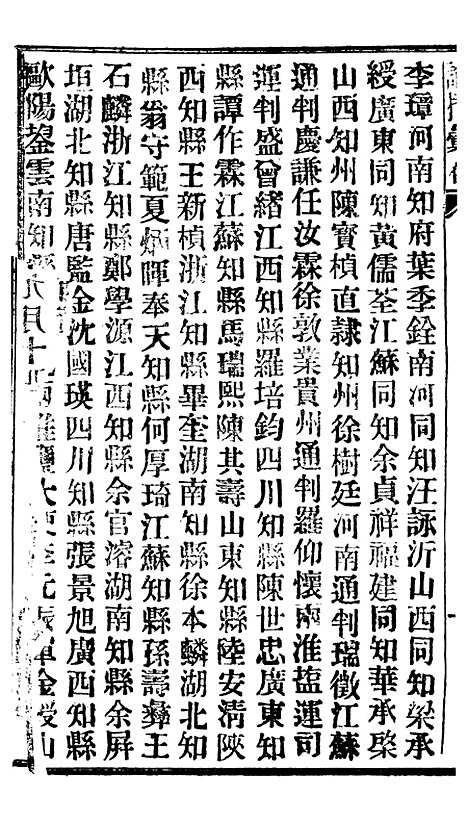 李璋河南知府葉季銓南河同知汪詠沂山西同知梁承
綬廣東同知黃儒荃江蘇同知余貞祥福建同知華承棨
山西知州陳寳楨直隸知州徐樹廷河南通判瑞徵江蘇
通判慶謙任汝霖徐敦業貴州通判羅仰懷兩淮塩運司
運判盛曾緒江西知縣羅培鈞四川知縣陳世忠廣東知
縣譚作霖江蘇知縣馬瑞熙陳其壽山東知縣陸安清陝
西知縣王新楨浙江知縣畢奎湖南知縣徐本麟湖北知
縣翁守範夏暉奉天知縣何厚琦江蘇知縣孫壽彝王
石麟浙江知縣鄭學源江西知縣余官濬湖南知縣余屏
垣湖北知縣唐監金沈國瑛四川知縣張景旭廣西知縣
歐陽鋆雲南知大使金受山